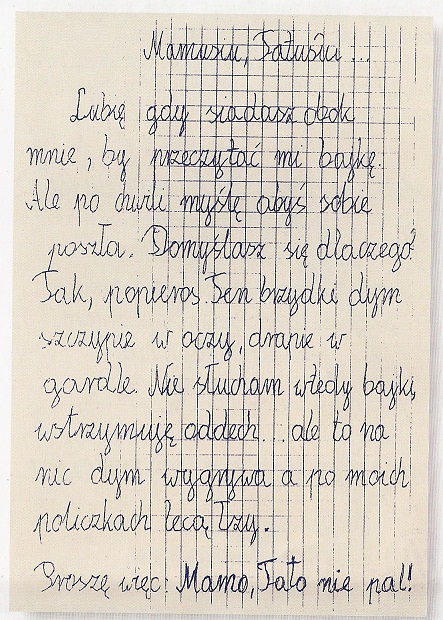 Mamusiu, Tatusiu ...
Lubię gdy siadasz obok
mnie, by przeczytać mi bajkę.
Ale po chwili myślę abyś sobie
poszła. Domyślasz się dlaczego?
Tak, papieros. Ten brzydki dym
szczypie w oczy, drapie w
gardle. Nie słucham wtedy bajki,
wstrzymuję oddech... ale to na
nic dym wygrywa a po moich
policzkach lecą łzy.
Proszę więc: Mamo, Tato nie pal!